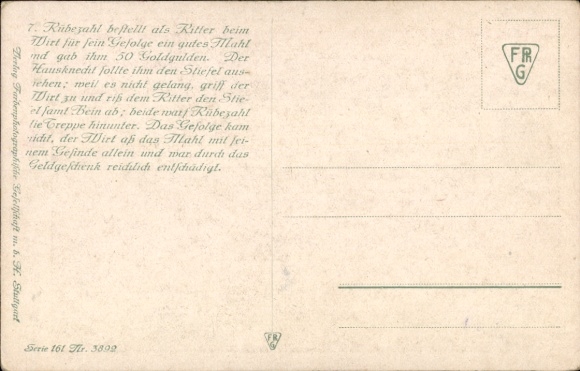 7. Rübezahl bestellt als Ritter beim
Wirt für sein Gefolge ein gutes Mahl
nd gab ihm 50 Goldgulden. Der
Hausknecht sollte ihm den Stiefel aus-
iehen; weil es nicht gelang, griff der
Wirt zu und riß dem Ritter den Stie-
el samt Bein ab; beide warf Rübezahl
ie Treppe hinunter. Das Gefolge kam
nicht, der Wirt aß das Mahl mit sei-
nem Gesinde allein und war durch das
Geldgeschenk reichlich entschädigt.
Verlag Farbenphotographische Gesellschaft m. b. H. Stuttgart
Serie 161 Nr. 3892
F Ph G
F Ph G